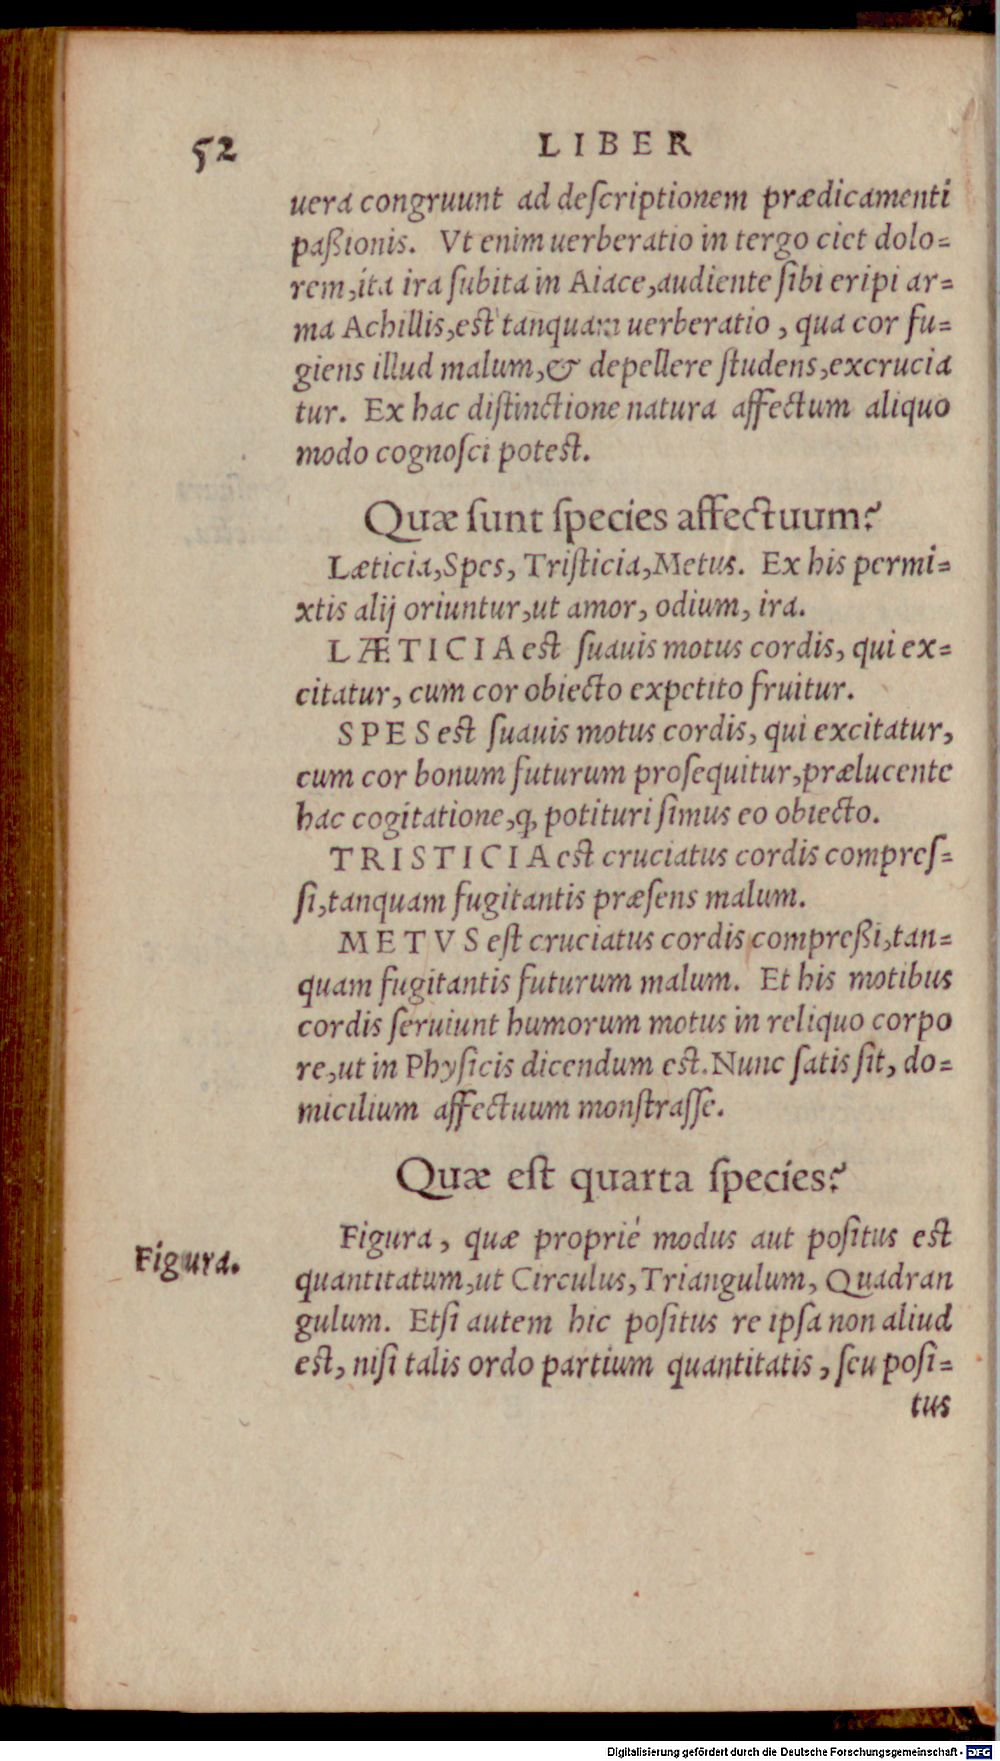 52 LIBER
uera congruunt ad deſcriptionem prædicamenti
paßionis. Vt enim uerberatio in tergo ciet dolo=
rem,ita ira ſubita in Aiace,audiente ſibi eripi ar=
ma Achillis,est tanquam uerberatio, qua cor fu=
giens illud malum,& depellere ſtudens,excrucia
tur. Ex hac diſtinctione natura affectum aliquo
modo cognoſci potest.
Quæ ſunt ſpecies affectuum?
Læticia,Spes, Triſticia,Metus. Ex his permi=
xtis alij oriuntur,ut amor, odium, ira.
LÆTICIA est ſuauis motus cordis, qui ex=
citatur, cum cor obiecto expetito fruitur.
SPES est ſuauis motus cordis, qui excitatur,
cum cor bonum futurum proſequitur,prælucente
hac cogitatione,ꝙ potituri ſimus eo obiecto.
TRISTICIA est cruciatus cordis compreſ=
ſi,tanquam fugitantis præſens malum.
METVS eſt cruciatus cordis compreßi,tan=
quam fugitantis futurum malum. Et his motibus
cordis ſeruiunt humorum motus in reliquo corpo
re,ut in Phyſicis dicendum est. Nunc ſatis ſit, do=
micilium affectuum monſtraſſe.
Quæ eſt quarta ſpecies?
Figura.
Figura, quæ proprié modus aut poſitus est
quantitatum,ut Circulus,Triangulum, Quadran
gulum. Etſi autem hic poſitus re ipſa non aliud
est, niſi talis ordo partium quantitatis, ſeu poſi=
tus
Digitalisierung gefördert durch die Deutsche Forschungsgemeinschaft - DFG